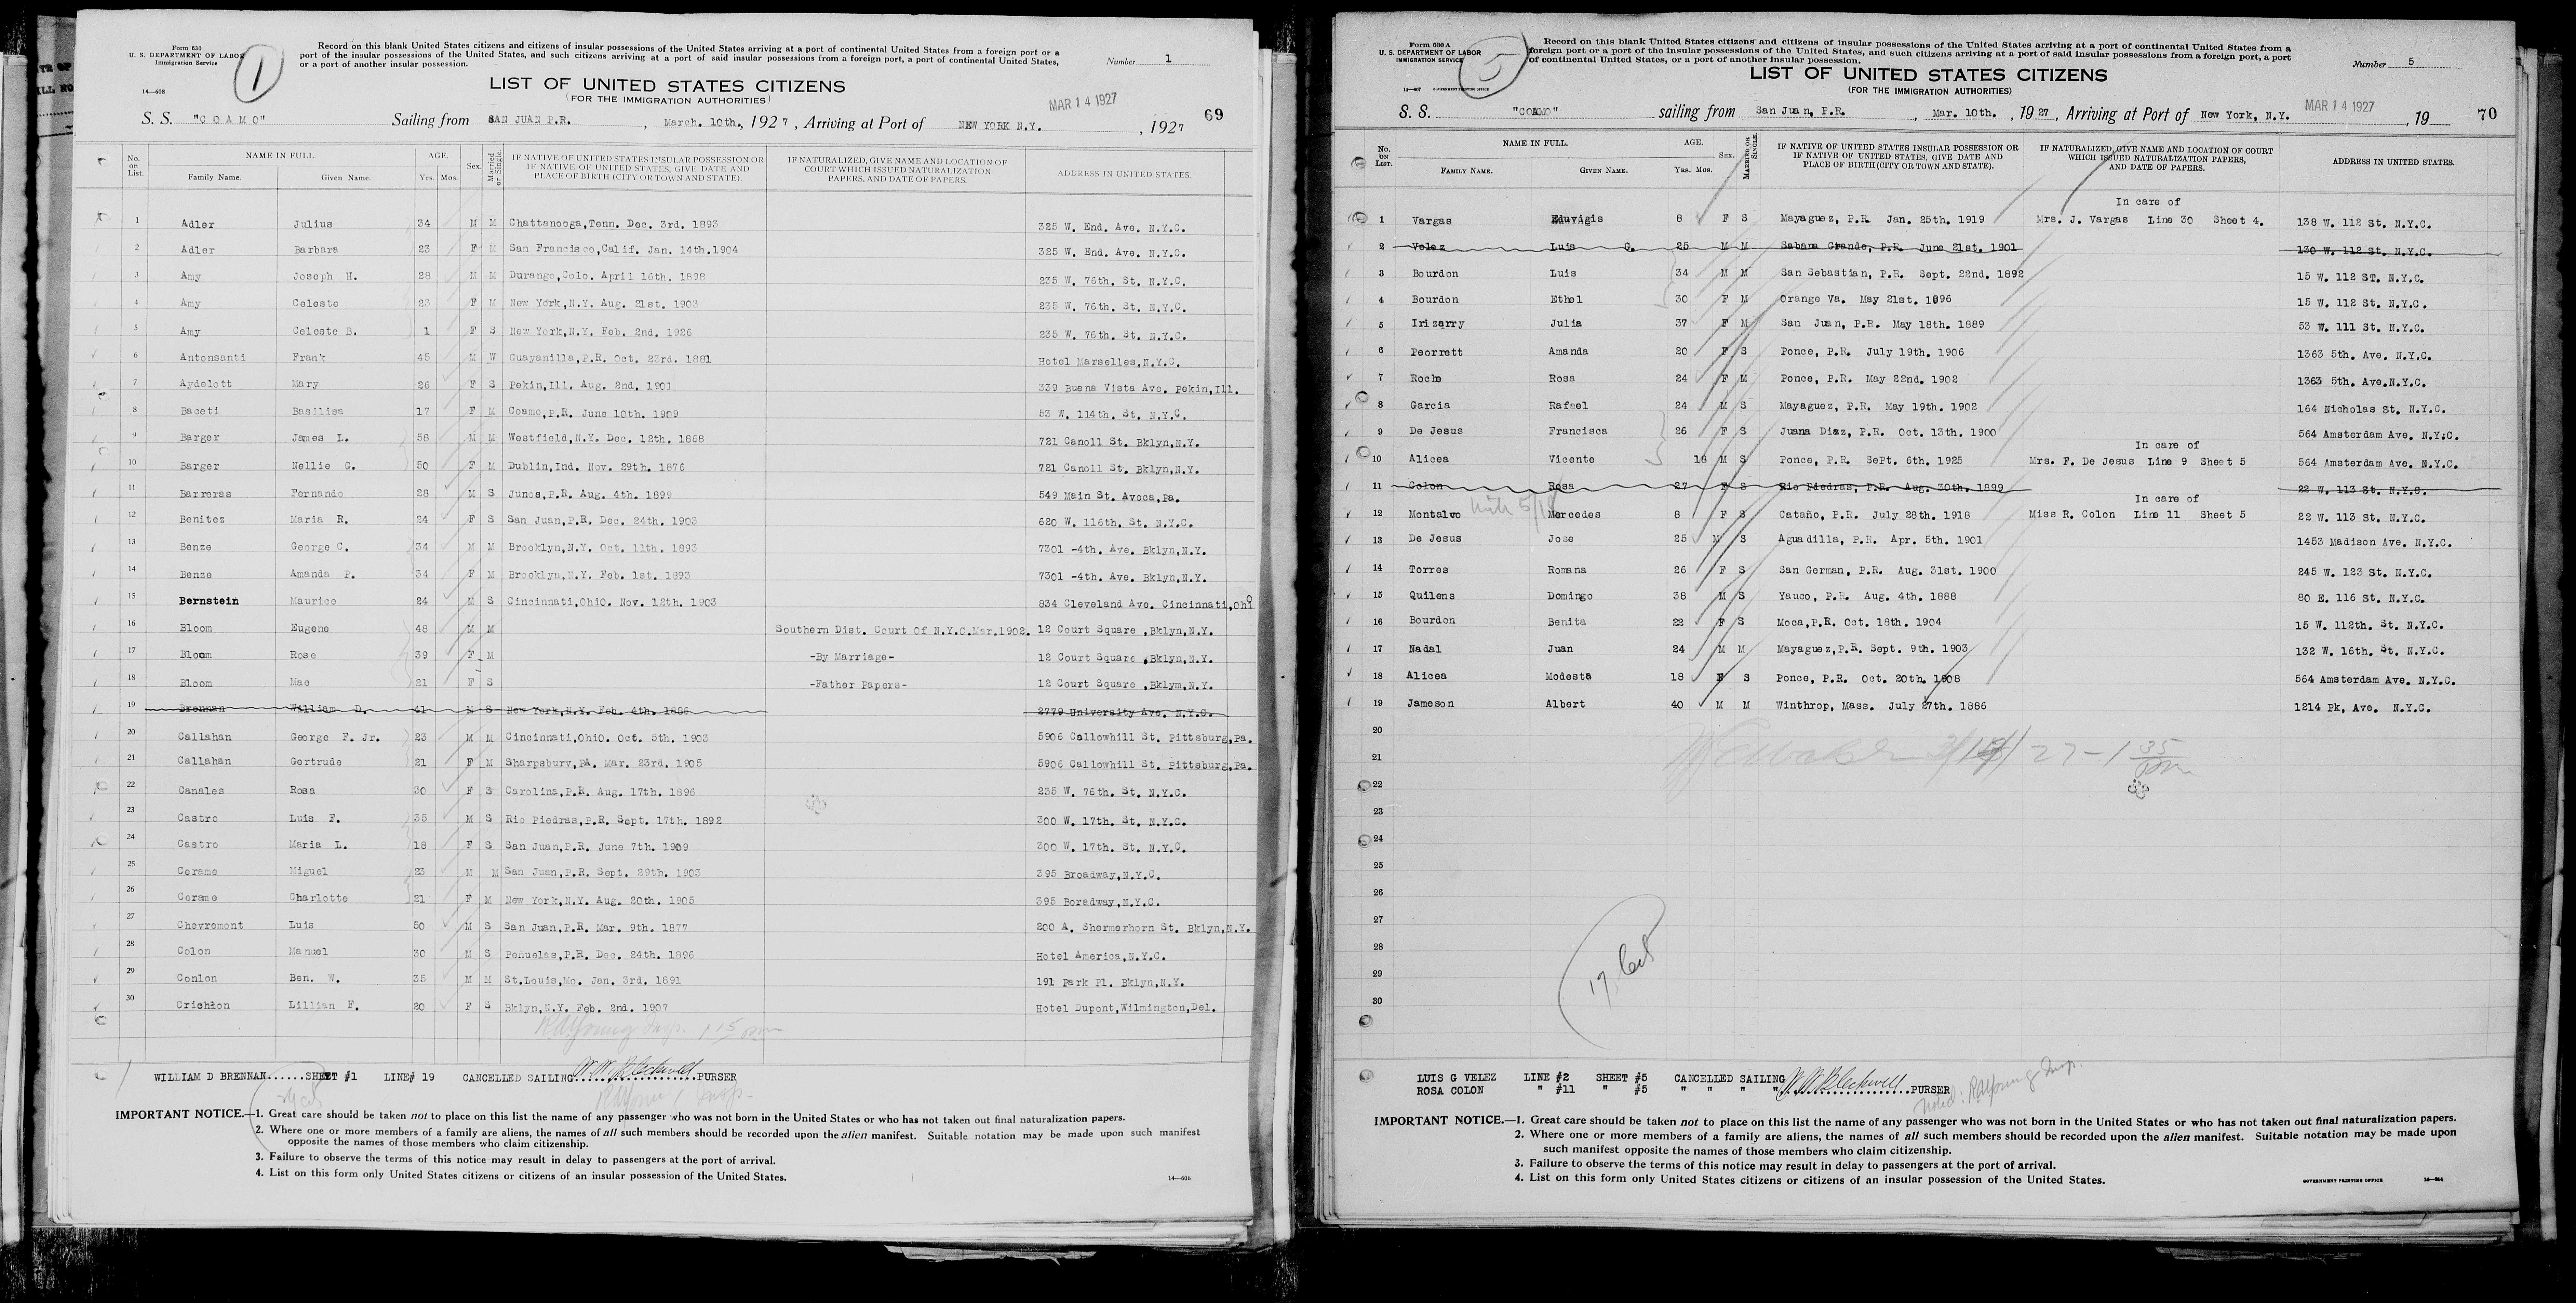 Form 630
U. S. DEPARTMENT OF LABOR
Immigration Service
14—608
1
Record on this blank United States citizens and citizens of insular possessions of the United States arriving at a port of continental United States from a foreign port or a
port of the insular possessions of the United States, and such citizens arriving at a port of said insular possessions from a foreign port, a port of continental United States,
or a port of another insular possession.
Number 1
LIST OF UNITED STATES CITIZENS
(FOR THE IMMIGRATION AUTHORITIES)
MAR 14 1927
S. S. "COAMO" Sailing from SAN JUAN P.R. , March. 10th., 1927 , Arriving at Port of NEW YORK N.Y. , 1927
69
No. on List. NAME IN FULL. Family Name. Given Name. AGE. Yrs. Mos. Sex. Married or Single. IF NATIVE OF UNITED STATES INSULAR POSSESSION OR IF NATIVE OF UNITED STATES, GIVE DATE AND PLACE OF BIRTH (CITY OR TOWN AND STATE). IF NATURALIZED, GIVE NAME AND LOCATION OF COURT WHICH ISSUED NATURALIZATION PAPERS, AND DATE OF PAPERS. ADDRESS IN UNITED STATES.
1 Adler Julius 34 M M Chattanooga,Tenn. Dec. 3rd. 1893 325 W. End. Ave. N.Y.C.
2 Adler Barbara 23 F M San Francisco,Calif. Jan. 14th.1904 325 W. End. Ave. N.Y.C.
3 Amy Joseph H. 28 M M Durango,Colo. April 16th. 1898 235 W. 76th. St. N.Y.C.
4 Amy Celeste 23 F M New York,N.Y. Aug. 21st. 1903 235 W. 76th. St. N.Y.C.
5 Amy Celeste B. 1 F S New York,N.Y. Feb. 2nd. 1926 235 W. 76th. St. N.Y.C.
6 Antonsanti Frank 45 M W Guayanilla,P.R. Oct. 23rd. 1881 Hotel Marselles,N.Y.C.
7 Aydelott Mary 26 F S Pekin,Ill. Aug. 2nd. 1901 339 Buena Vista Ave. Pekin,Ill.
8 Baceti Basilisa 17 F M Coamo,P.R. June 10th. 1909 53 W. 114th. St. N.Y.C.
9 Barger James L. 58 M M Westfield,N.Y. Dec. 12th. 1868 721 Canoll St. Bklyn,N.Y.
10 Barger Nellie G. 50 F M Dublin,Ind. Nov. 29th. 1876 721 Canoll St. Bklyn,N.Y.
11 Barreras Fernando 28 M S Junos,P.R. Aug. 4th. 1899 549 Main St. Avoca,Pa.
12 Benitez Maria R. 24 F S San Juan,P.R. Dec. 24th. 1903 620 W. 116th. St. N.Y.C.
13 Benze George C. 34 M M Brooklyn,N.Y. Oct. 11th. 1893 7301 -4th. Ave. Bklyn,N.Y.
14 Benze Amanda P. 34 F M Brooklyn,N.Y. Feb. 1st. 1893 7301 -4th. Ave. Bklyn,N.Y.
15 Bernstein Maurice 24 M S Cincinnati,Ohio. Nov. 12th. 1903 834 Cleveland Ave. Cincinnati,Ohio
16 Bloom Eugene 48 M M Southern Dist. Court Of N.Y.C.Mar.1902. 12 Court Square ,Bklyn,N.Y.
17 Bloom Rose 39 F M -By Marriage- 12 Court Square ,Bklyn,N.Y.
18 Bloom Mae 21 F S -Father Papers- 12 Court Square ,Bklym,N.Y.
19 Brennan William D. 41 M S New York,N.Y. Feb. 4th. 1886 2779 University Ave. N.Y.C.
20 Callahan George F. Jr. 23 M M Cincinnati,Ohio. Oct. 5th. 1903 5906 Callowhill St. Pittsburg,Pa.
21 Callahan Gertrude 21 F M Sharpsburv,Pa. Mar. 23rd. 1905 5906 Callowhill St. Pittsburg,Pa.
22 Canales Rosa 30 F S Carolina,P.R. Aug. 17th. 1896 235 W. 76th. St. N.Y.C.
23 Castro Luis F. 35 M S Rio Piedras,P.R. Sept. 17th. 1892 300 W. 17th. St. N.Y.C.
24 Castro Maria L. 18 F S San Juan,P.R. June 7th. 1909 300 W. 17th. St. N.Y.C.
25 Cerame Miguel 23 M M San Juan,P.R. Sept. 29th. 1903 395 Broadway,N.Y.C.
26 Cerame Charlotte 21 F M New York,N.Y. Aug. 20th. 1905 395 Boradway,N.Y.C.
27 Chevremont Luis 50 M S San Juan,P.R. Mar. 9th. 1877 200 A. Shermerhorn St. Bklyn,N.Y.
28 Colon Manuel 30 M S Peñuelas,P.R. Dec. 24th. 1896 Hotel America,N.Y.C.
29 Conlon Ben. W. 35 M M St.Louis,Mo. Jan. 3rd. 1891 191 Park Pl. Bklyn,N.Y.
30 Crichton Lillian F. 20 F S Bklyn,N.Y. Feb. 2nd. 1907 Hotel Dupont,Wilmington,Del.
RAYoung Insp. 1 15 pm
WILLIAM D BRENNAN......SHEET #1 LINE# 19 CANCELLED SAILING W.W.Bleckwell PURSER
IMPORTANT NOTICE.—1. Great care should be taken not to place on this list the name of any passenger who was not born in the United States or who has not taken out final naturalization papers.
2. Where one or more members of a family are aliens, the names of all such members should be recorded upon the alien manifest. Suitable notation may be made upon such manifest
opposite the names of those members who claim citizenship.
3. Failure to observe the terms of this notice may result in delay to passengers at the port of arrival.
4. List on this form only United States citizens or citizens of an insular possession of the United States.
14—608
Form 630 A
U. S. DEPARTMENT OF LABOR
IMMIGRATION SERVICE
14—607 GOVERNMENT PRINTING OFFICE
5
Record on this blank United States citizens and citizens of insular possessions of the United States arriving at a port of continental United States from a
foreign port or a port of the insular possessions of the United States, and such citizens arriving at a port of said insular possessions from a foreign port, a port
of continental United States, or a port of another insular possession.
Number 5
LIST OF UNITED STATES CITIZENS
(FOR THE IMMIGRATION AUTHORITIES)
MAR 14 1927
S. S. "COAMO" sailing from San Juan, P.R. , Mar. 10th. , 1927 , Arriving at Port of New York, N.Y. , 19
70
No. on List. NAME IN FULL. Family Name. Given Name. AGE. Yrs. Mos. Sex. Married or Single. IF NATIVE OF UNITED STATES INSULAR POSSESSION OR IF NATIVE OF UNITED STATES, GIVE DATE AND PLACE OF BIRTH (CITY OR TOWN AND STATE). IF NATURALIZED, GIVE NAME AND LOCATION OF COURT WHICH ISSUED NATURALIZATION PAPERS, AND DATE OF PAPERS. ADDRESS IN UNITED STATES.
In care of
1 Vargas Eduvigis 8 F S Mayaguez, P.R. Jan. 25th. 1919 Mrs. J. Vargas Line 30 Sheet 4. 138 W. 112 St. N.Y.C.
2 Velez Luis G. 25 M M Sabana Grande, P.R. June 21st. 1901 130 W. 112 St. N.Y.C.
3 Bourdon Luis 34 M M San Sebastian, P.R. Sept. 22nd. 1892 15 W. 112 ST. N.Y.C.
4 Bourdon Ethel 30 F M Orange Va. May 21st. 1896 15 W. 112 St. N.Y.C.
5 Irizarry Julia 37 F M San Juan, P.R. May 18th. 1889 53 W. 111 St. N.Y.C.
6 Peorrett Amanda 20 F S Ponce, P.R. July 19th. 1906 1363 5th. Ave. N.Y.C.
7 Roche Rosa 24 F M Ponce, P.R. May 22nd. 1902 1363 5th. Ave.N.Y.C.
8 Garcia Rafael 24 M S Mayaguez, P.R. May 19th. 1902 164 Nicholas St. N.Y.C.
9 De Jesus Francisca 26 F S Juana Diaz, P.R. Oct. 13th. 1900 564 Amsterdam Ave. N.Y.C.
In care of
10 Alicea Vicente 18 M S Ponce, P.R. SePt. 6th. 1925 Mrs. F. De Jesus Line 9 Sheet 5 564 Amsterdam Ave. N.Y.C.
11 Colon Rosa 27 F S Rio Piedras, P.R. Aug. 30th. 1899 22 W. 113 St. N.Y.C.
In care of
12 Montalvo Mercedes 8 F S Cataño, P.R. July 28th. 1918 Miss R. Colon Line 11 Sheet 5 22 W. 113 St. N.Y.C.
13 De Jesus Jose 25 M S Aguadilla, P.R. Apr. 5th. 1901 1453 Madison Ave. N.Y.C.
14 Torres Romana 26 F S San German, P.R. Aug. 31st. 1900 245 W. 123 St. N.Y.C.
15 Quilens Domingo 38 M S Yauco, P.R. Aug. 4th. 1888 80 E. 116 St. N.Y.C.
16 Bourdon Benita 22 F S Moca,P.R. Oct. 18th. 1904 15 W. 112th. St. N.Y.C.
17 Nadal Juan 24 M M Mayaguez,P.R. Sept. 9th. 1903 132 W. 16th. St. N.Y.C.
18 Alicea Modesta 18 F S Ponce, P.R. Oct. 20th. 1908 564 Amsterdam Ave. N.Y.C.
19 Jameson Albert 40 M M Winthrop, Mass. July 27th. 1886 1214 Pk, Ave. N.Y.C.
20
21
22
23
24
25
26
27
28
29
30
17
LUIS G VELEZ LINE #2 SHEET #5 CANCELLED SAILING
ROSA COLON " #11 " #5 " " " " W.W.Bleckwell PURSER
Noted: RAYoung Insp.
IMPORTANT NOTICE.—1. Great care should be taken not to place on this list the name of any passenger who was not born in the United States or who has not taken out final naturalization papers.
2. Where one or more members of a family are aliens, the names of all such members should be recorded upon the alien manifest. Suitable notation may be made upon
such manifest opposite the names of those members who claim citizenship.
3. Failure to observe the terms of this notice may result in delay to passengers at the port of arrival.
4. List on this form only United States citizens or citizens of an insular possession of the United States.
GOVERNMENT PRINTING OFFICE